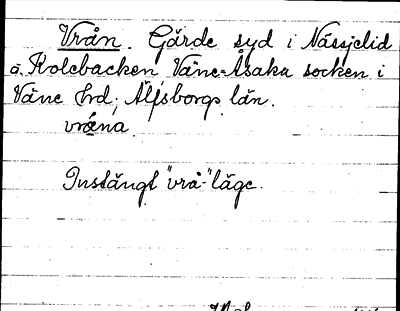 Vrån. Gärde syd i Nässjelid
å Kolebacken Väne-Åsaka socken i
Väne Hrd; Älfsborgs län.
vråna
Instängt "vrå-"läge.